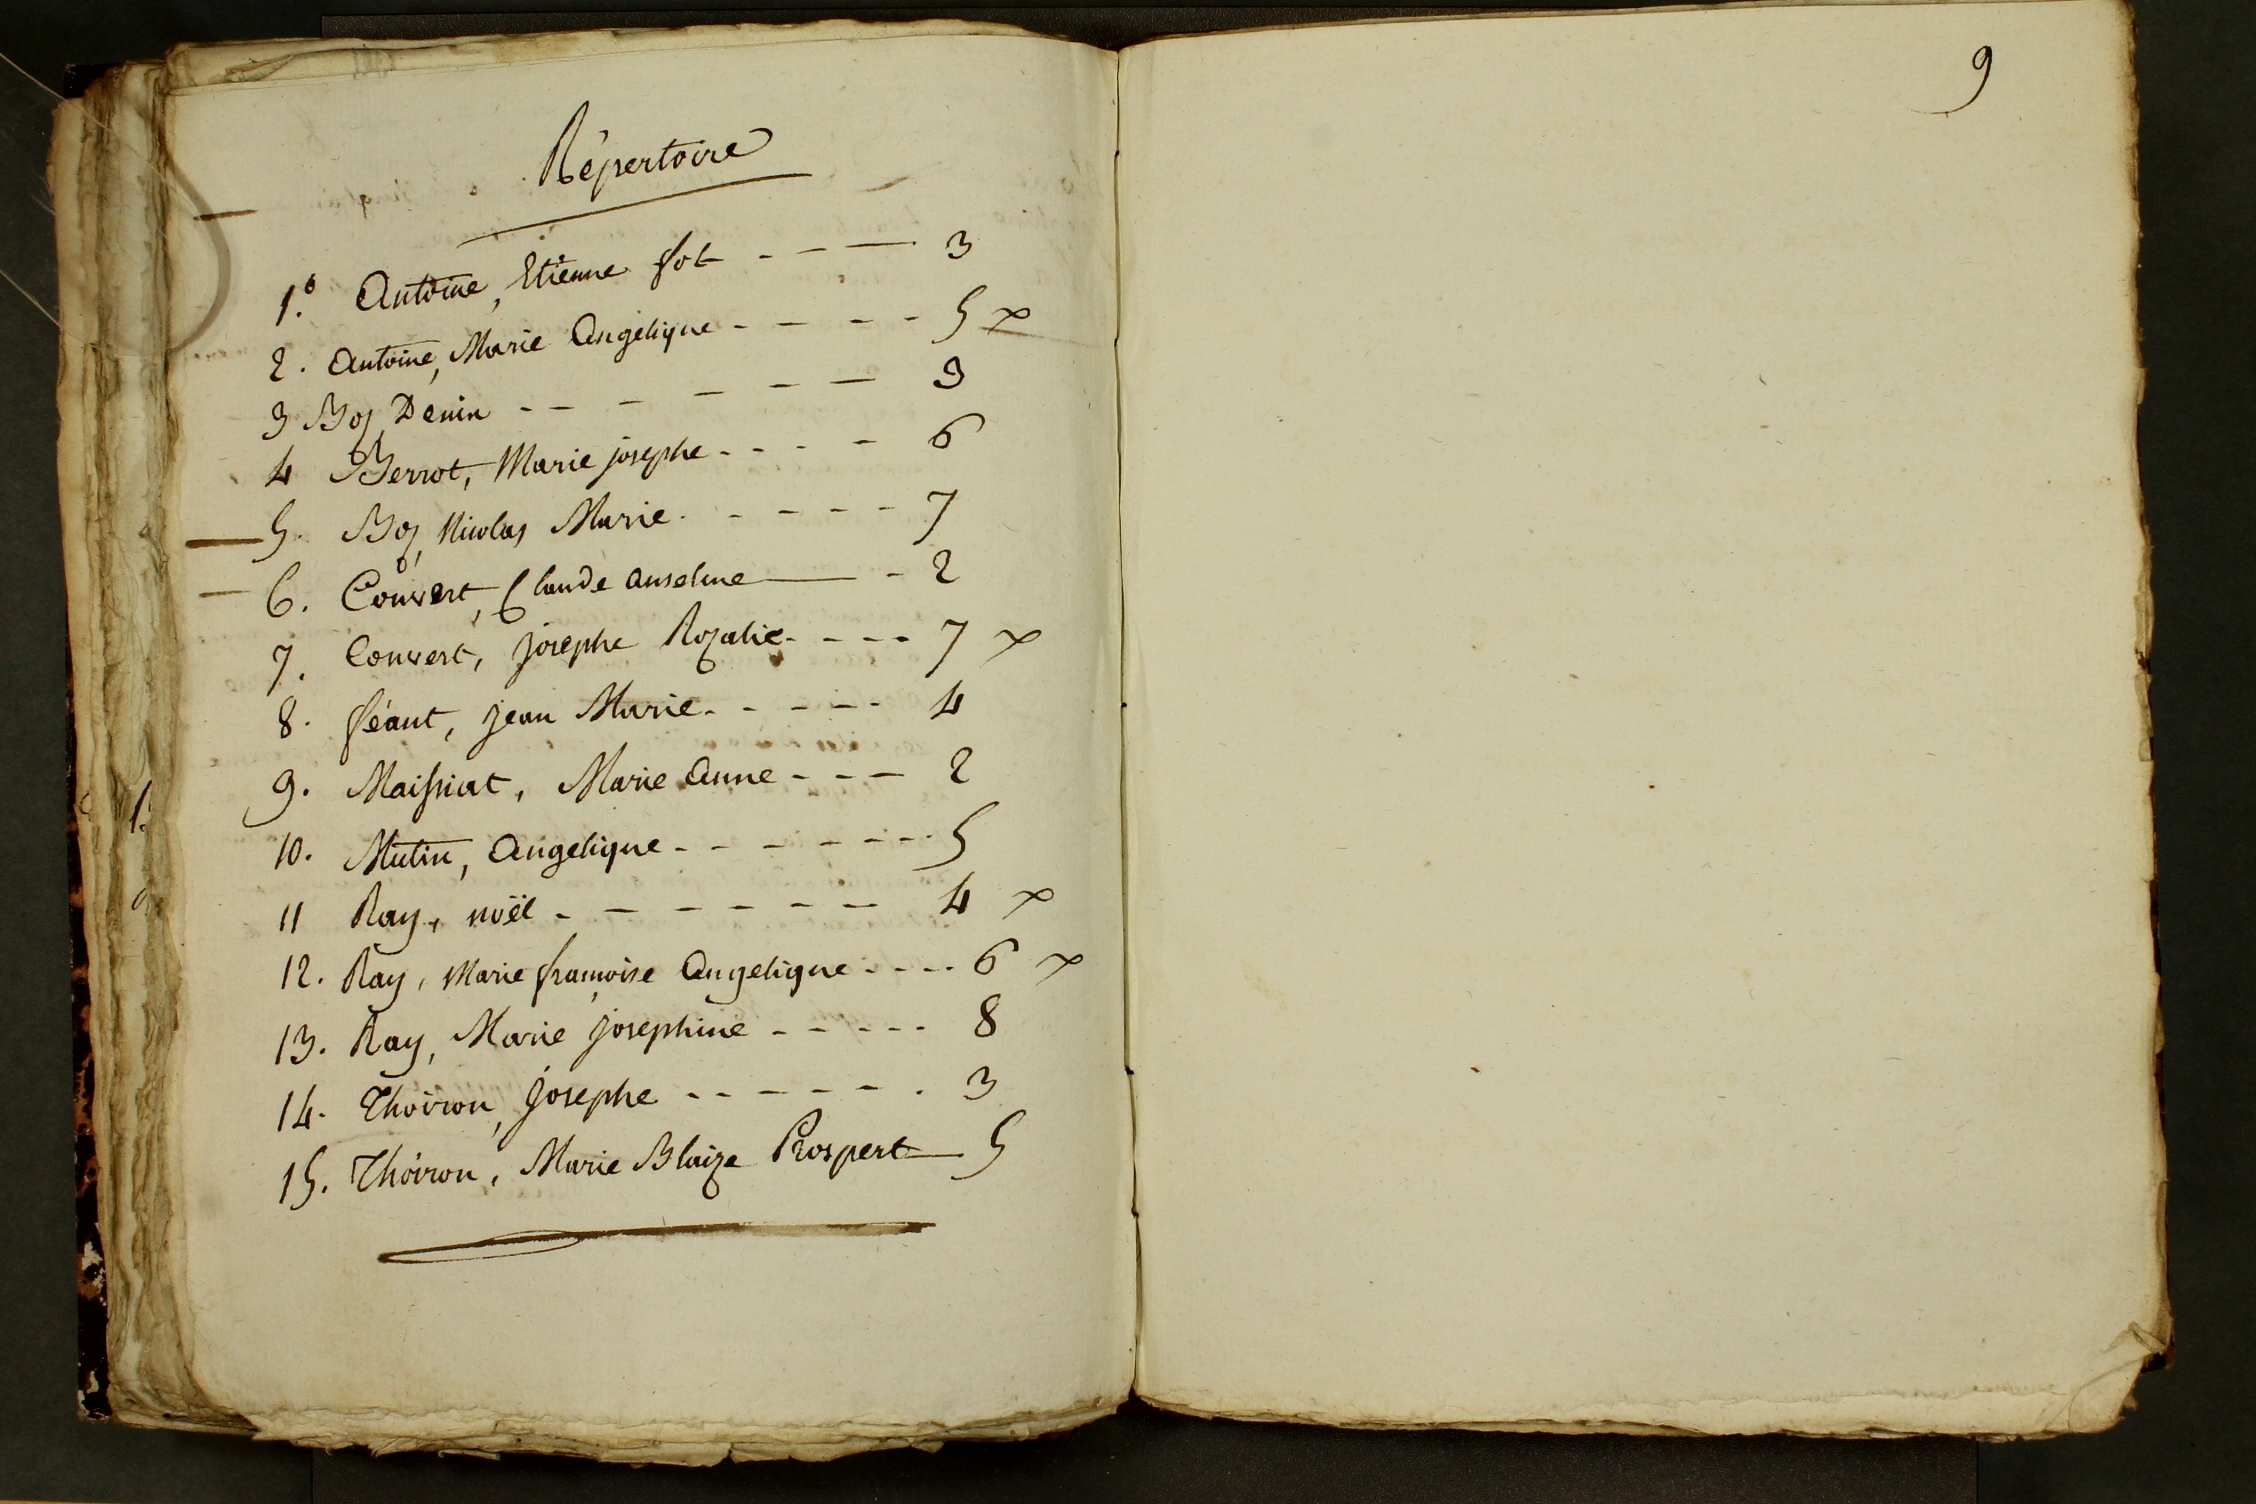 Répertoire
1.o Antoine, Etienne fot - - - 3
2. Antoine, Marie Angélique - - - - 5 x
3 Boz, Denin - - - - - - 3
4 Berrot, Marie josephe - - - - 6
5. Boz, Nicolas Marie. - - - - 7
6. Convert, Claude anselme - - 2
7. Convert, josephe Rozalie - - - - 7 x
8. féaut, jean Marie - - - - - 4
9. Maissiat, Marie Anne - - - 2
10. Mutin, Angelique - - - - - - - 5
11 Ray, noël - - - - - - - 4 x
12. Ray, Marie francoise Angelique - - - - 6 x
13. Ray, Marie josephine - - - - - 8
14. Thoiron, josephe - - - - - - 3
15. Thoiron, Marie Blaize Prospert - 5
9